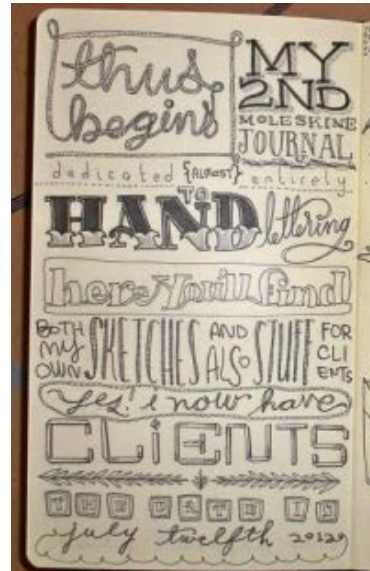 thus begins
MY 2ND MOLESKINE JOURNAL
dedicated {ALMOST} entirely
TO
HAND lettering
here You'll find
BOTH MY OWN SKETCHES AND ALSO STUFF FOR CLIENTS
Yes! i now have
CLiENTS
THE DATE IS
july twelfth 2012